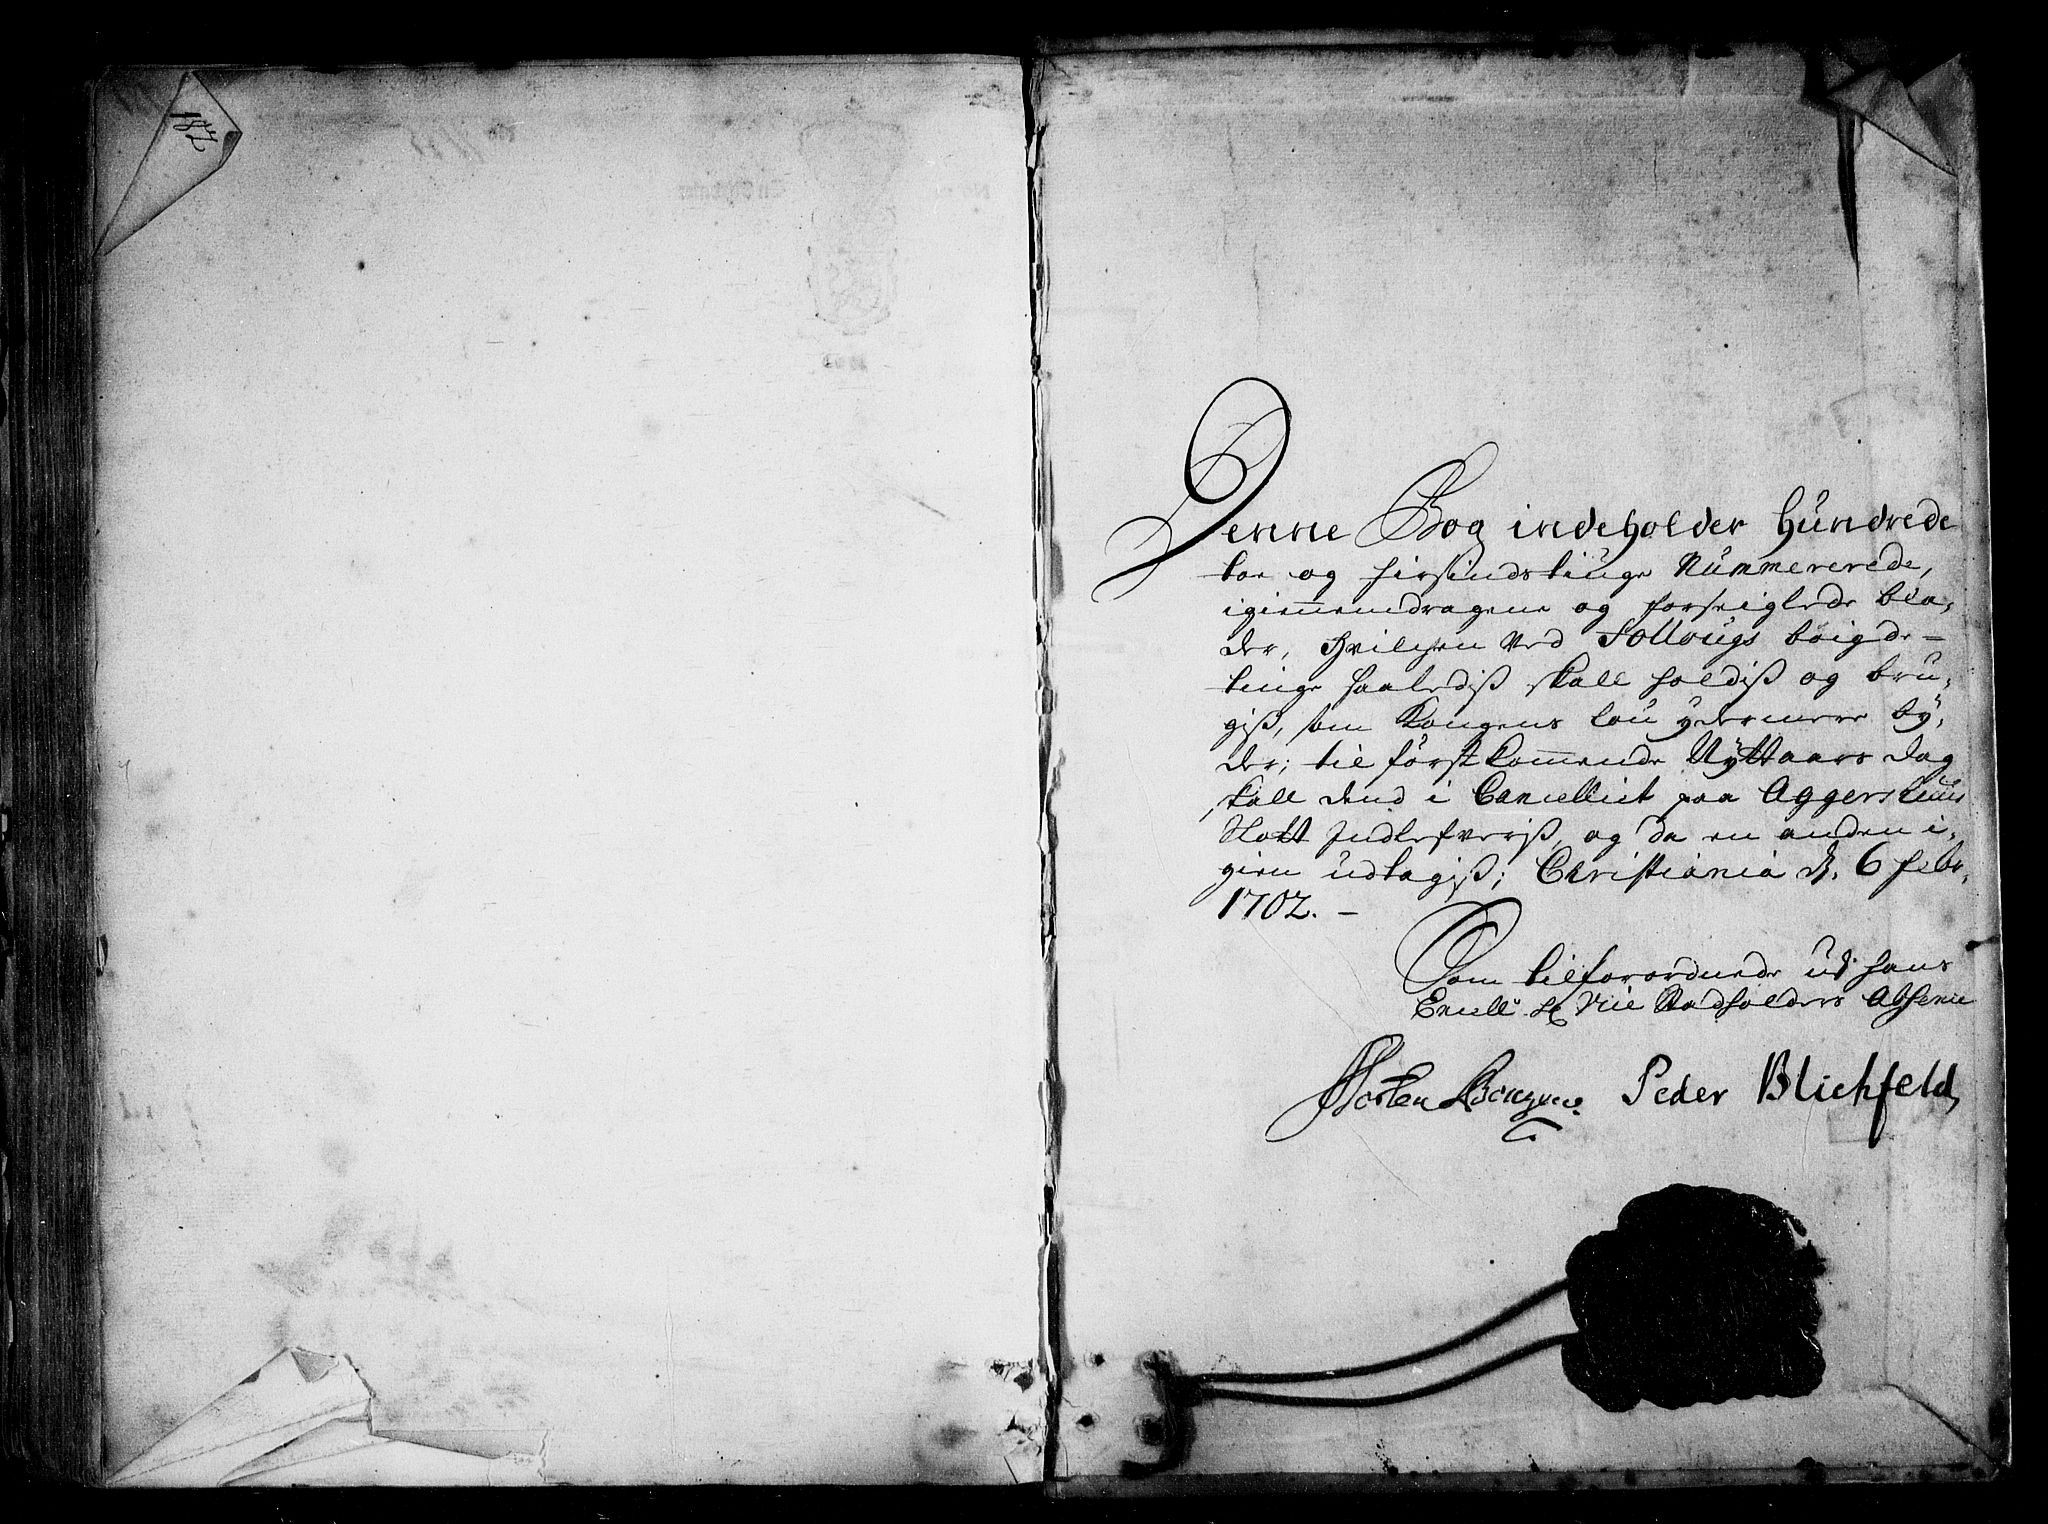 182
Denne Bog indeholder Hundrede
toe og firsindstiuge Nummererede,
igiennemdragene og forseiglede bla,
der, hvilchen ved Follougs böigde-
tinge saalediß skall holdiß og bru,
giß, som Kongens lou ydermere bÿ,
der; til förstkommende Nÿttaars dag
skall dend i Cancelliet paa Aggershuus
Slott Indlefveriß, og da en anden i,
gien udtagiß; Christiania d. 6 Febr.
1702. -
Som tilforordnede udj hans
Excell. Hr Vice Stadholders Absence
Morten Peder Blichfeld,